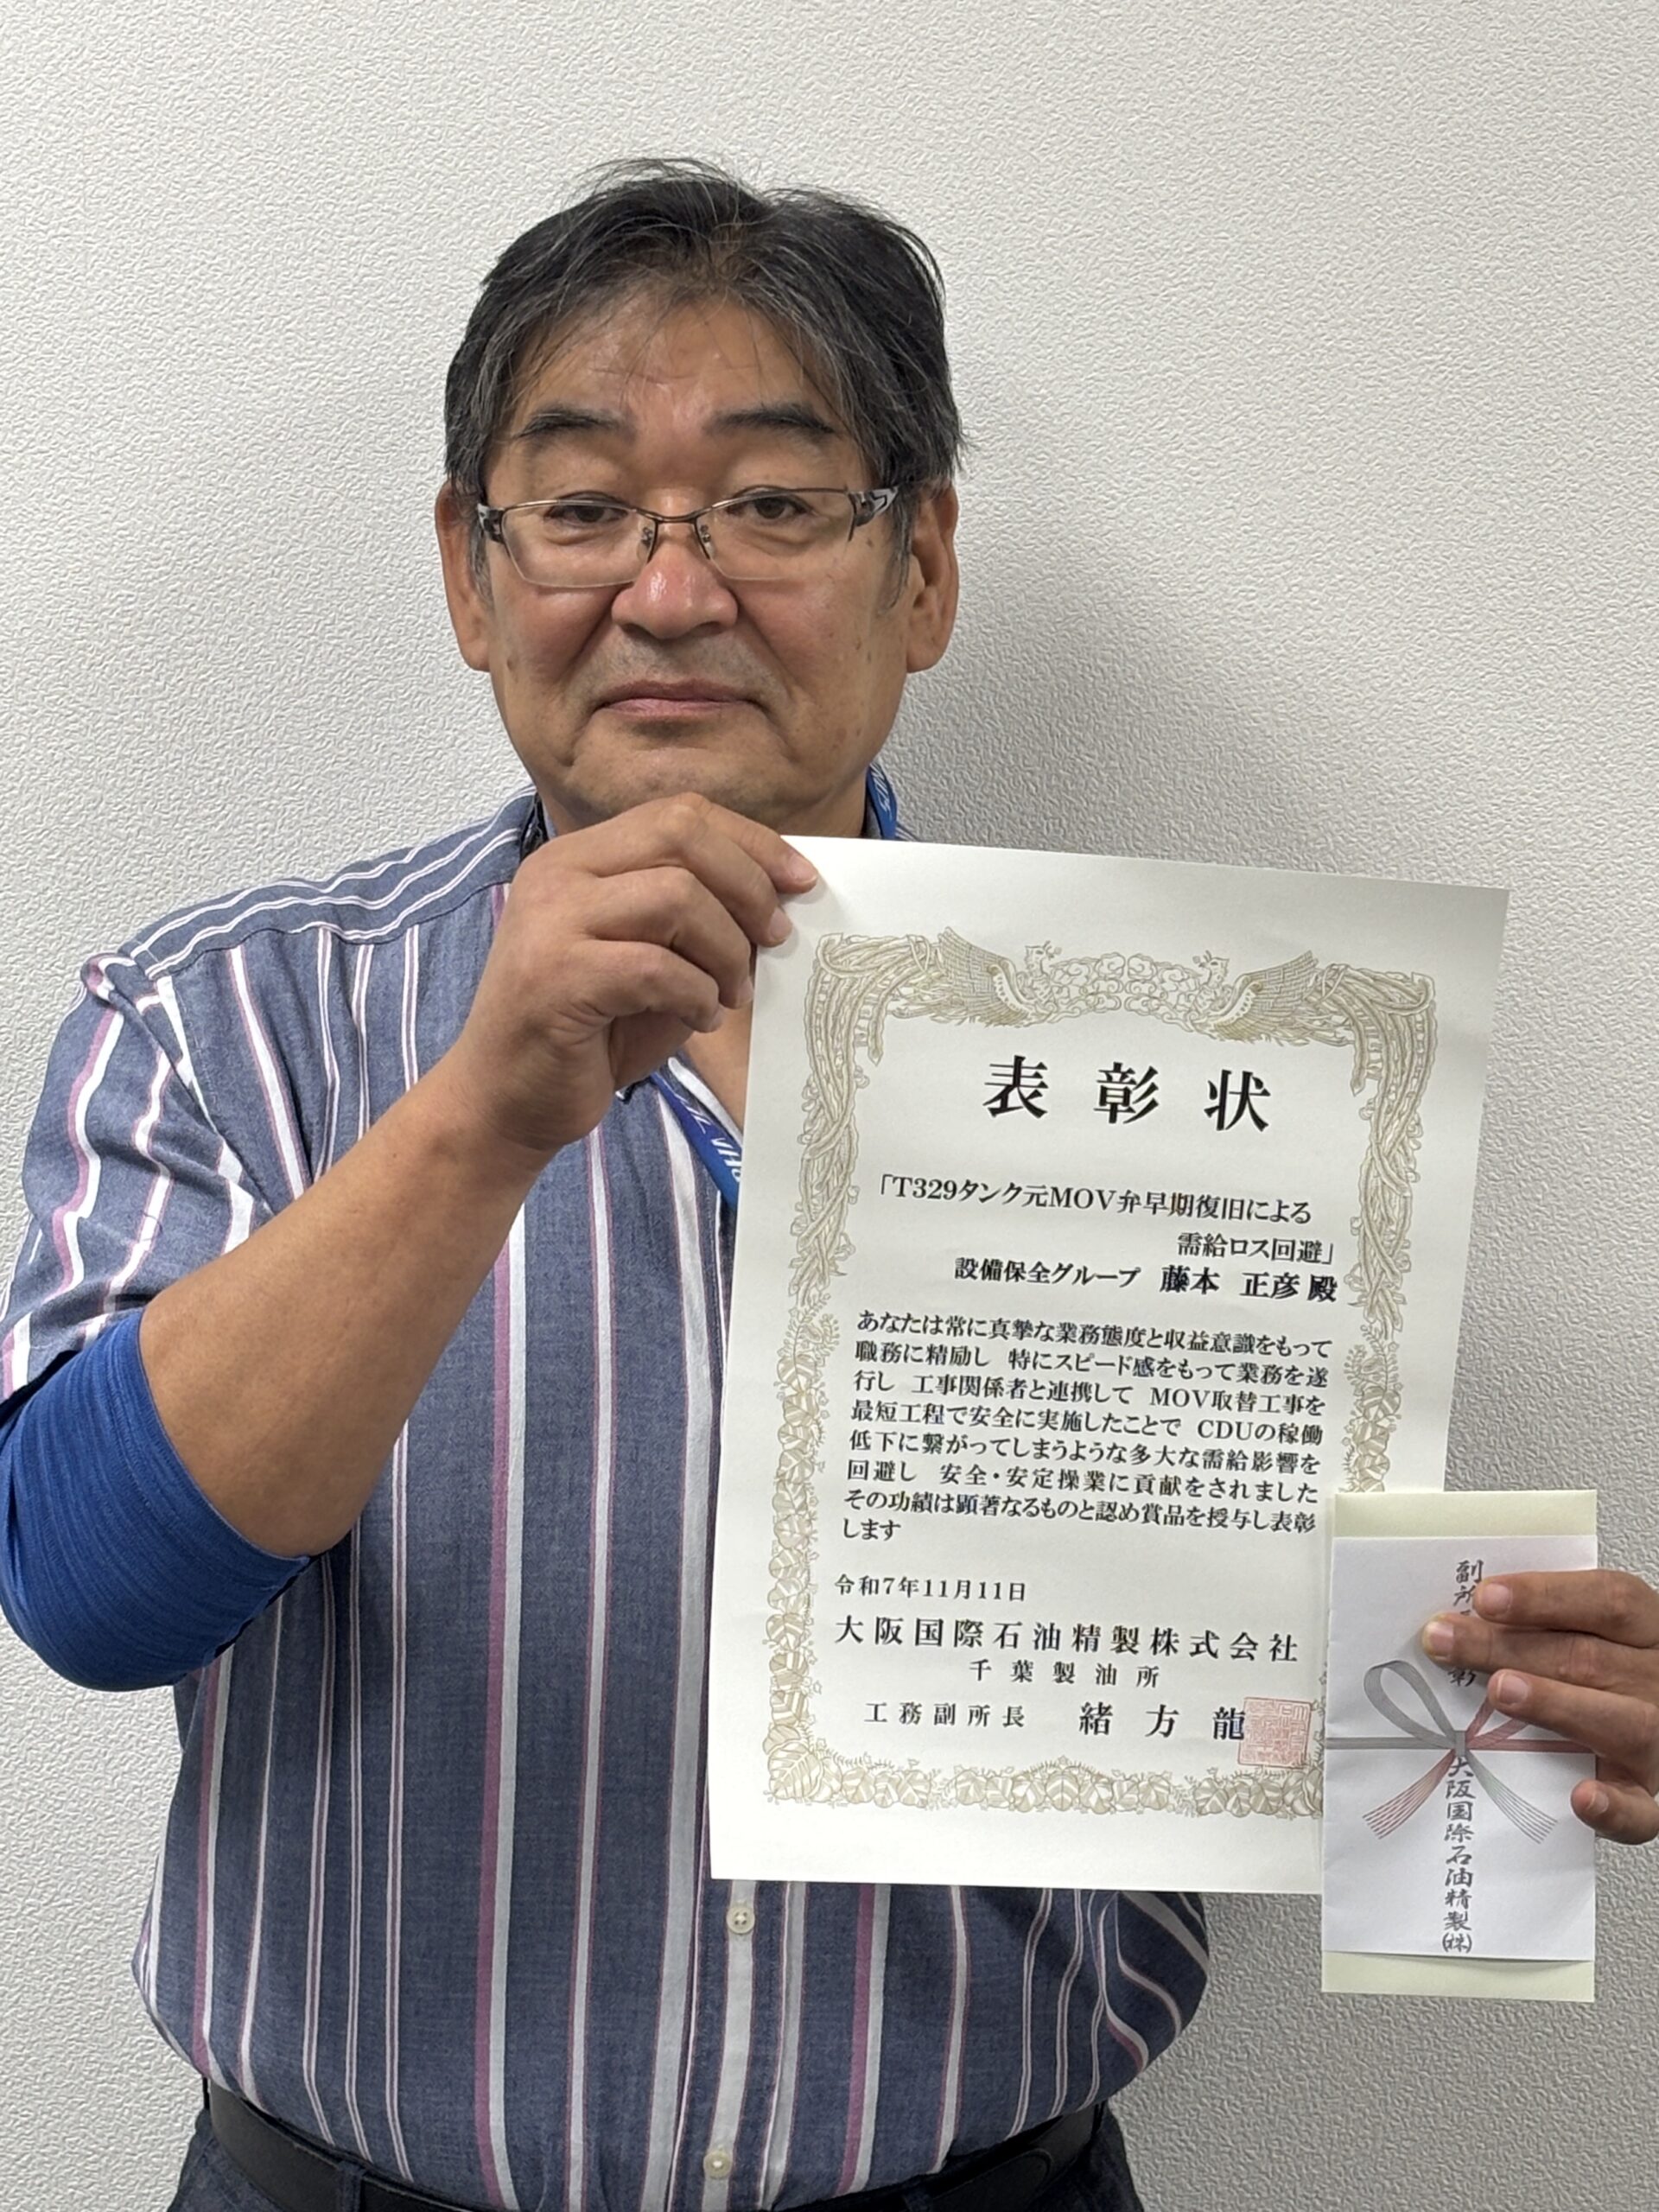 表彰状
「T329タンク元MOV弁早期復旧による
需給ロス回避」
設備保全グループ 藤本 正彦 殿
あなたは常に真摯な業務態度と収益意識をもって
職務に精励し 特にスピード感をもって業務を遂
行し 工事関係者と連携して MOV取替工事を
最短工程で安全に実施したことで CDUの稼働
低下に繋がってしまうような多大な需給影響を
回避し 安全・安定操業に貢献をされました
その功績は顕著なるものと認め賞品を授与し表彰
します
令和7年11月11日
大阪国際石油精製株式会社
千葉製油所
工務副所長 緒方 龍
副所
彰
大阪国際石油精製(株)